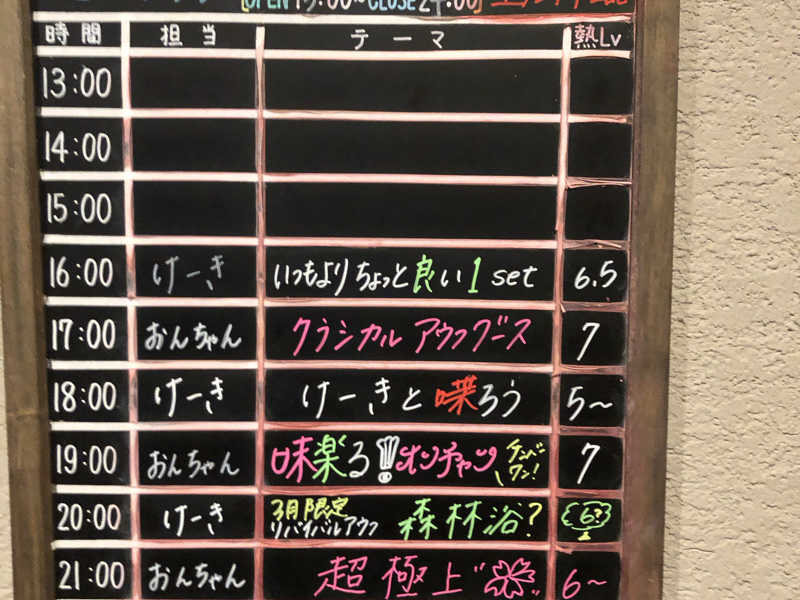 OPEN 13:00~CLOSE 24:00
時間 担当 テーマ 熱Lv
13:00
14:00
15:00
16:00 けーき いつもよりちょっと良い1set 6.5
17:00 おんちゃん クラシカルアウフグース 7
18:00 けーき けーきと喋ろう 5~
19:00 おんちゃん 味楽る!オンチャン ナンバワン! 7
20:00 けーき 3月限定リバイバルアウフ 森林浴? 6?
21:00 おんちゃん 超極上" 6~